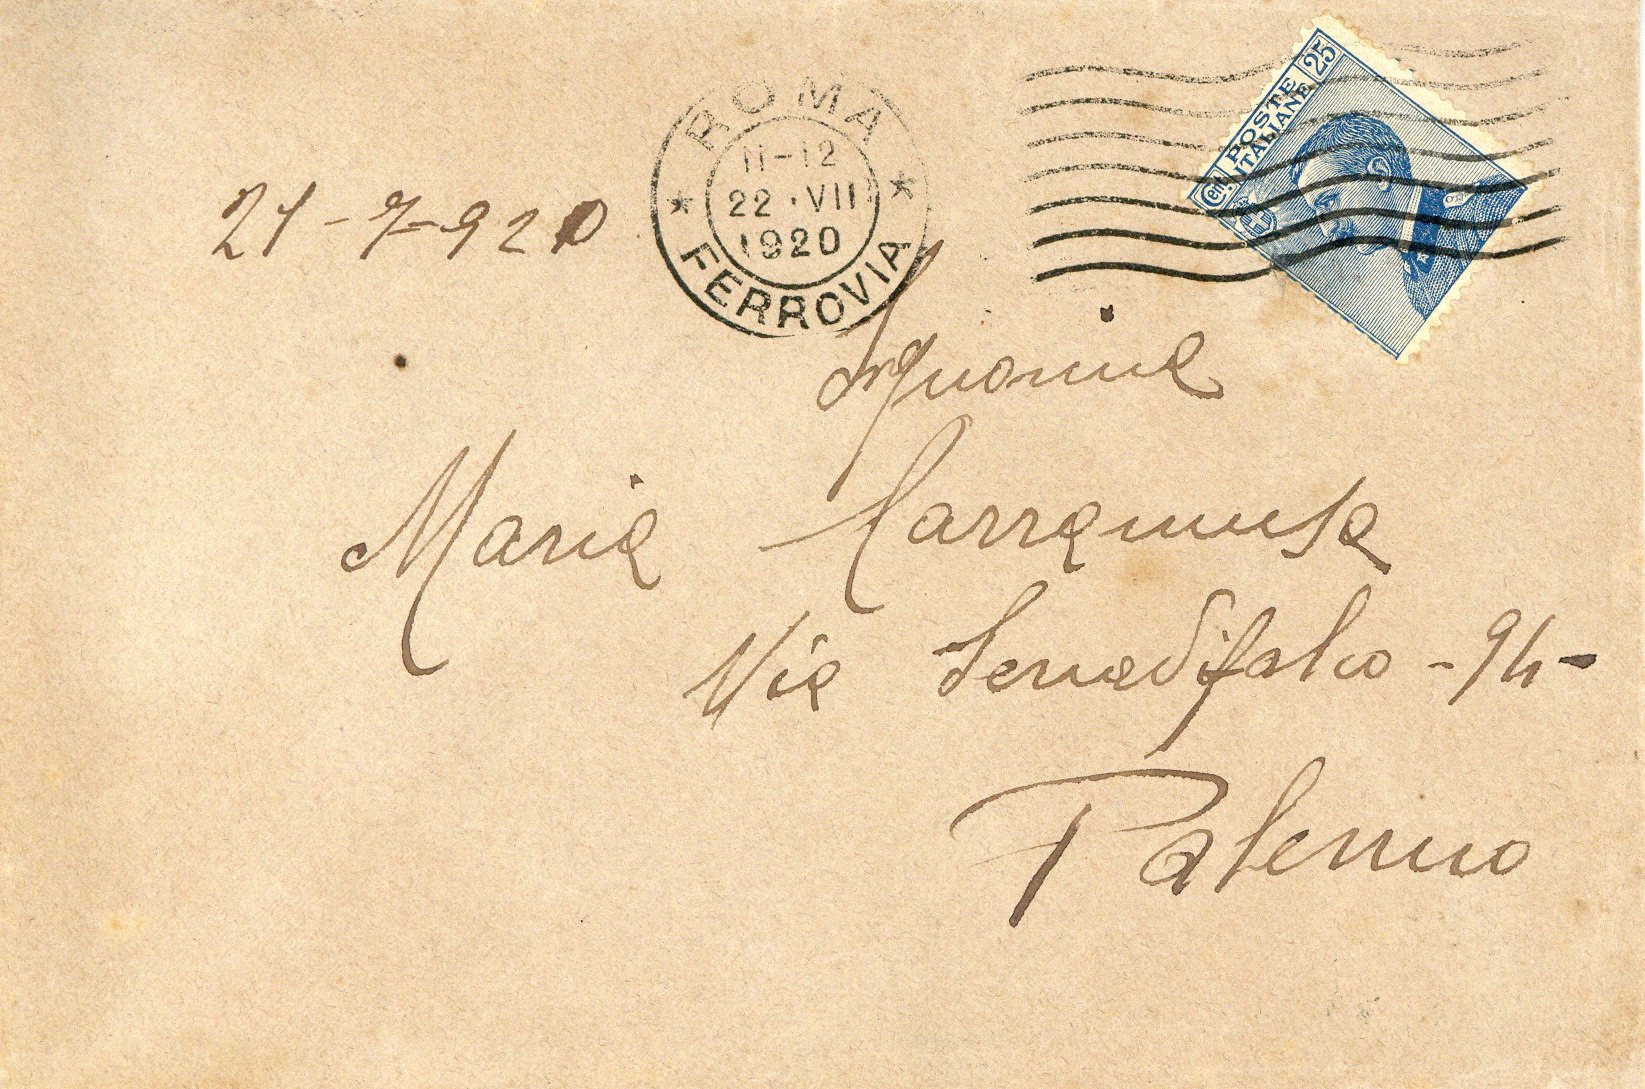 ROMA
11-12
22·VII
1920
FERROVIA
Cent 25
POSTE
ITALIANE
21-7-920
Maria Carramusa
Via Serradifalco -94-
Palermo